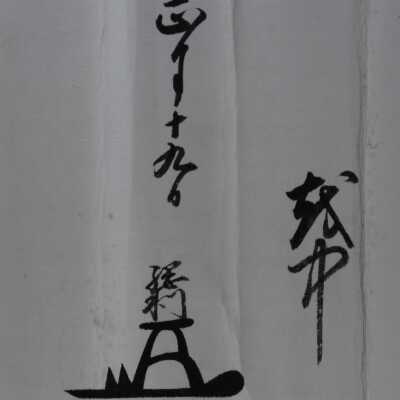 越中
正月十九日